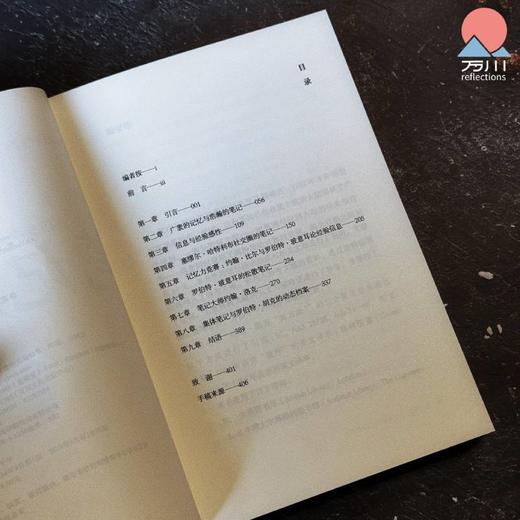 万川
reflections
目
录
编者按——i
前 言——iii
第一章 引言——001
第二章 广袤的记忆与浩瀚的笔记——056
第三章 信息与经验感性——109
第四章 塞缪尔·哈特利布社交圈的笔记——150
第五章 记忆力竞赛：约翰·比尔与罗伯特·玻意耳论经验信息——205
第六章 罗伯特·玻意耳的松散笔记——234
第七章 笔记大师约翰·洛克——270
第八章 集体笔记与罗伯特·胡克的动态档案——337
第九章 结语——389
致 谢——401
手稿来源——406